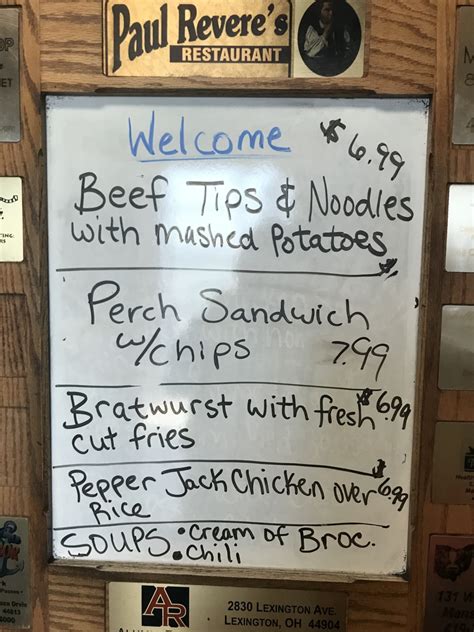 Paul Revere's
RESTAURANT
Welcome
$6.99
Beef Tips & Noodles
with mashed Potatoes
$
Perch Sandwich
w/chips 7.99
Bratwurst with fresh $6.99
cut fries
Pepper Jack Chicken over $6.99
Rice
SOUPS • Cream of Broc.
• Chili
AR
2830 LEXINGTON AVE.
LEXINGTON, OH 44904
131 W